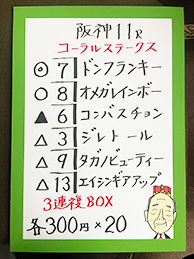 阪神11R
コーラルステークス
◎7 ドンフランキー
○8 オメガレインボー
▲6 コンバスチョン
△3 ジレトール
△9 タガノビューティー
△13 エイシンギアアップ
3連複BOX
各300円×20